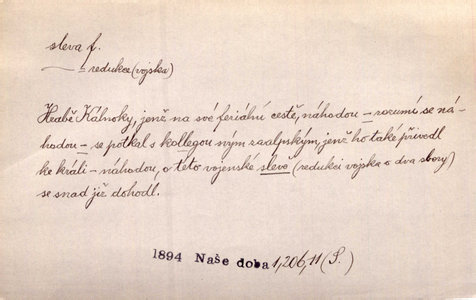 sleva f.
— redukce (vojska)
Hrabě Kálnoky, jenž na své feriální cestě, náhodou – rozumí se ná-
hodou – se potkal s kollegou svým zaalpským, jenž ho také přivedl
ke králi – náhodou, o této vojenské slevě (redukci vojska o dva sbory)
se snad již dohodl.
1894 Naše doba 1,206,11 (S.)